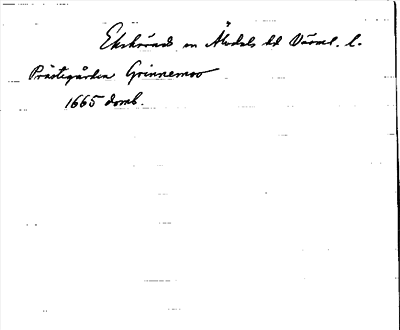 Ekshärad sn Älvdals hd Värml. l.
Prästegården Grinnemoo
1665 domb.